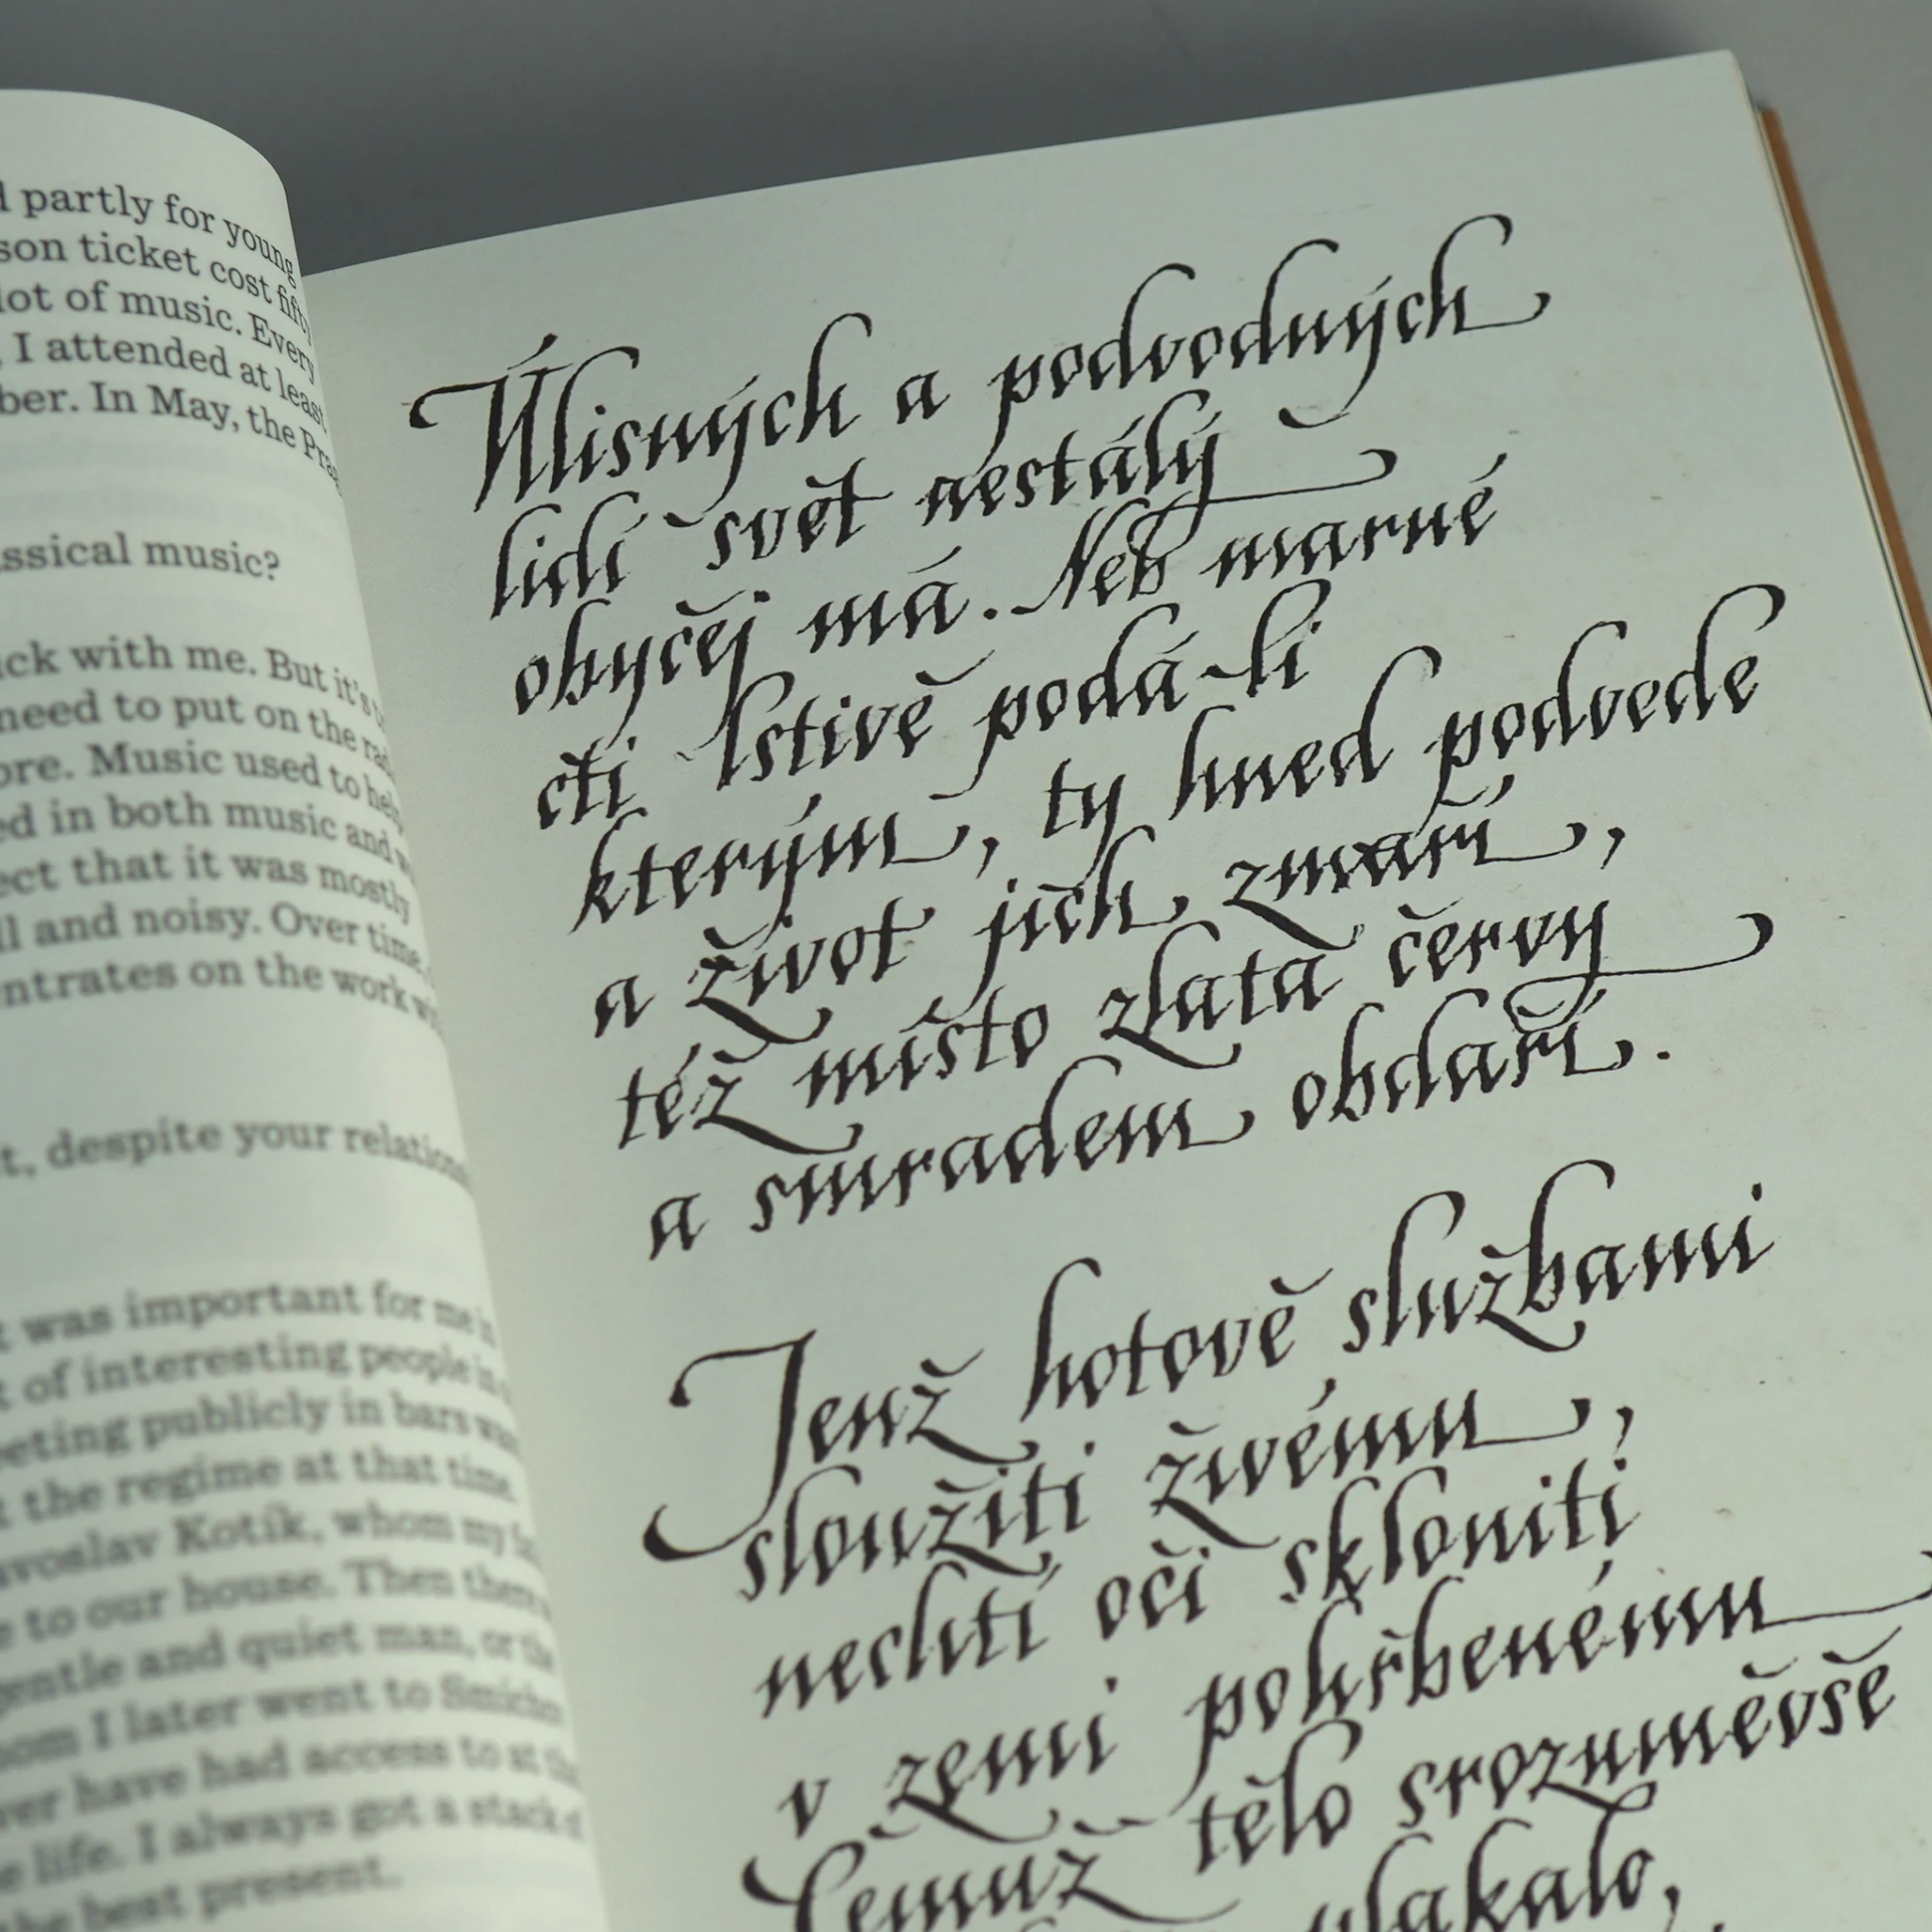 partly for young
son ticket cost fifty
lot of music. Every
, I attended at least
ber. In May, the
ssical music?
ck with me. But it's
need to put on the
ore. Music used to help
ed in both music and
ect that it was mostly
ll and noisy. Over time,
ntrates on the work
t, despite your
was important for me in
of interesting people
eting publicly in bars was
t the regime at that time.
avoslav Kotík, whom my
e to our house. Then there
gentle and quiet man, or the
om I later went to
ver have had access to at
e life. I always got a stack
the best present.
Úlisných a podvodných
lidí svět nestálý
obyčej má. Neb marné
cti lstivě podá-li
kterým, ty hned podvede
a život jich zmaří,
též místo zlata červy
a smradem obdaří.
Jenž hotově službami
sloužiti živému,
nechtí oči skloniti
v zemi pohřbenému
Čemuž tělo srozuměvše
plakalo,